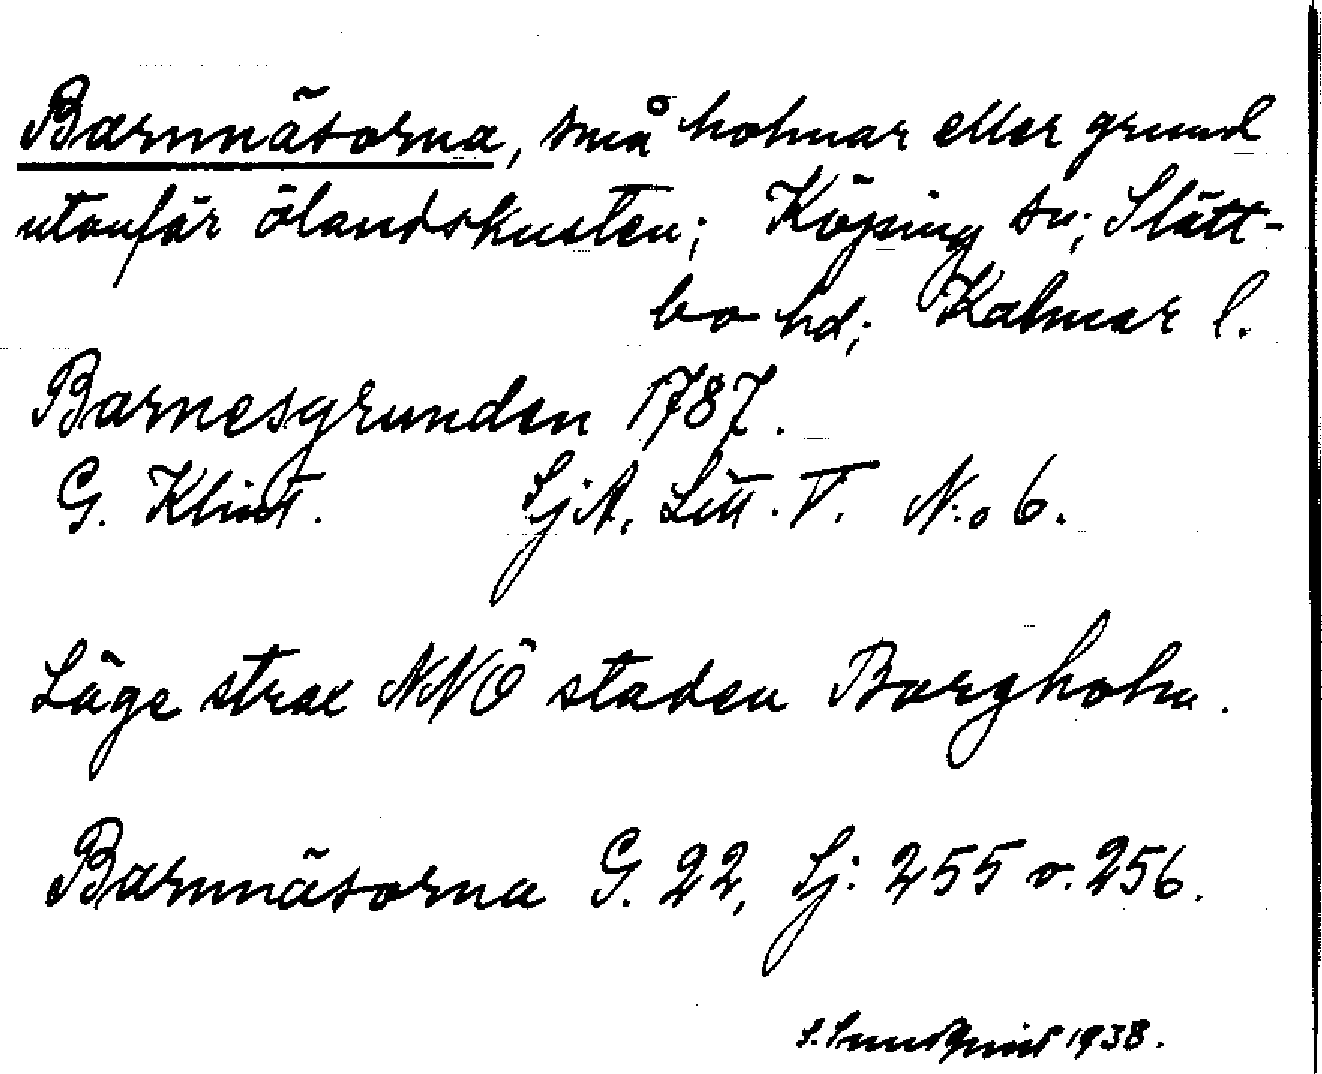 Barnnäsorna, små holmar eller grund
utanför ölandskusten; Köping sn; Slätt-
bo hd; Kalmar l.
Barnesgrunden 1787.
G. Klint. SjA, Litt. V. N:o 6.
Läge strax NNÖ staden Borgholm.
Barnnäsorna G. 22, Sj: 255 o. 256.
S. Sundqvist 1938.